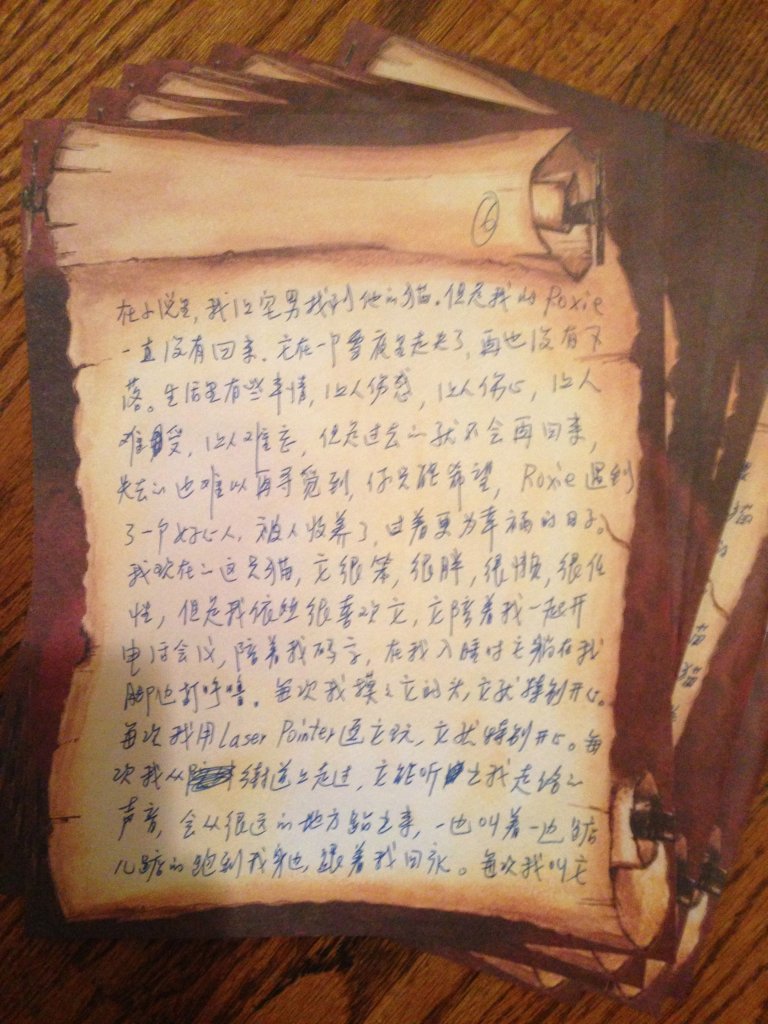 ⑥
在小说里，我让宅男找到他的猫。但是我的Roxie
一直没有回来。它在一个雪夜里走失了，再也没有下
落。生活里有些事情，让人伤感，让人伤心，让人
难受，让人难忘，但是过去的就不会再回来，
失去的也难以再寻觅到，你只能希望，Roxie遇到
了一个好心人，被人收养了，过着更为幸福的日子。
我现在的这只猫，它很笨，很胖，很懒，很任
性，但是我依然很喜欢它，它陪着我一起开
电话会议，陪着我码字，在我入睡时它躺在我
脚边打呼噜。每次我摸摸它的头，它就特别开心。
每次我用Laser Pointer逗它玩，它就特别开心。每
次我从街道上走过，它能听出我走路的
声音，会从很远的地方跑出来，一边叫着一边
的跑到我身边，跟着我回家。每次我叫它
猫
的